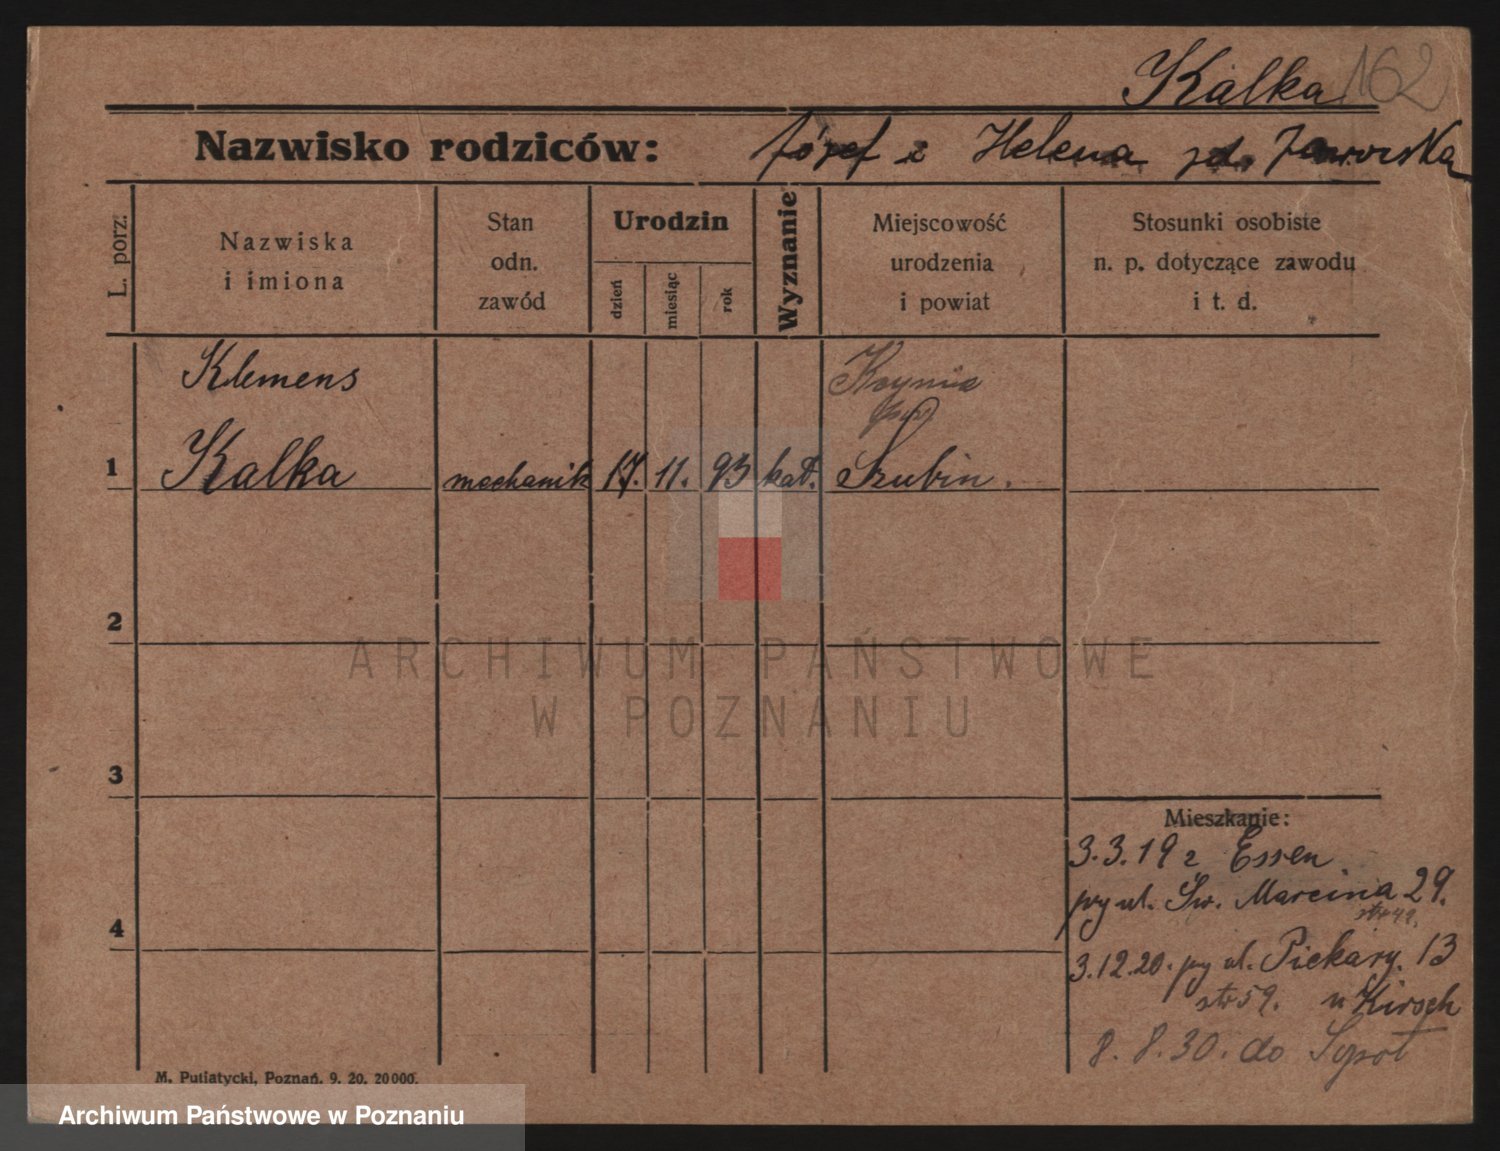 Kalka 162
Nazwisko rodziców: Józef z Helena zd. Jaworska
L. porz.
Nazwiska
i imiona
Stan
odn.
zawód
Urodzin
dzień
miesiąc
rok
Wyznanie
Miejscowość
urodzenia
i powiat
Stosunki osobiste
n. p. dotyczące zawodu
i t. d.
Klemens Kcynia
pow
1 Kalka mechanik 17. 11. 93 kat. Szubin.
2
3
4
Mieszkanie:
3.3.19 z Essen
przy ul. Św. Marcina 29.
str 49.
3.12.20. przy ul. Piekary. 13
str 59. u Kirsch
8. 8. 30. do
M. Putiatycki, Poznań. 9. 20. 20000.
ARCHIWUM PAŃSTWOWE
W POZNANIU
Archiwum Państwowe w Poznaniu